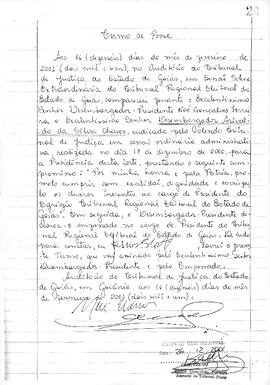 Termo de Posse
Aos 16 (dezesseis) dias do mês de janeiro de
2001 (dois mil e um), no Auditório do Tribunal
de Justiça do Estado de Goiás, em Sessão Solene
Extraordinária do Tribunal Regional Eleitoral do
Estado de Goiás, compareceu perante o Excelentíssimo
Senhor Desembargador Presidente José Gonçalves
o Excelentíssimo Senhor Desembargador
da Silva Chaves, indicado pelo Colendo Tribu-
nal de Justiça, em sessão ordinária administra-
tiva realizada no dia de dezembro de 2000, para
a Presidência desta Corte, prestando o seguinte com-
promisso: "Por minha honra e pela Pátria, pro-
meto cumprir com exatidão, dignidade e escrúpu-
lo os deveres inerentes ao cargo de Presidente do
Egrégio Tribunal Regional Eleitoral do Estado de
Goiás". Em seguida, o Desembargador Presidente de-
clarou-o empossado no cargo de Presidente do Tri-
bunal Regional Eleitoral do Estado de Goiás. E
para constar, eu lavrei o presen-
te Termo, que vai assinado pelo Excelentíssimo Senhor
Desembargador Presidente e pelo Empossado.
Auditório do Tribunal de Justiça do Estado de
Goiás, em Goiânia, aos 16 (dezesseis) dias do mês
de janeiro de 2001 (dois mil e um).